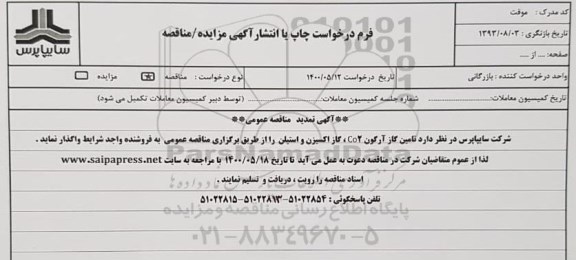 کد مدرک : موقت
تاریخ بازنگری : ۱۳۹۳/۰۸/۰۳
صفحه: ... از ....
فرم درخواست چاپ یا انتشار آگهی مزایده/مناقصه
سایپاپرس
واحد درخواست کننده : بازرگانی
تاریخ درخواست ۱۴۰۰/۰۵/۱۲
نوع درخواست : مناقصه مزایده
تاریخ کمیسیون معاملات: .................... شماره جلسه کمیسیون معاملات: .................... (توسط دبیر کمیسیون معاملات تکمیل می شود)
**آگهی تمدید مناقصه عمومی**
شرکت سایپاپرس در نظر دارد تامین گاز آرگون Co۲ ، گاز اکسیژن و استیلن را از طریق برگزاری مناقصه عمومی به فروشنده واجد شرایط واگذار نماید .
لذا از عموم متقاضیان شرکت در مناقصه دعوت به عمل می آید تا تاریخ ۱۴۰۰/۰۵/۱۸ با مراجعه به سایت www.saipapress.net
اسناد مناقصه را رویت ، دریافت و تسلیم نمایند .
تلفن پاسخگوئی : ۵۱۰۲۲۸۵۴-۵۱۰۲۲۸۷۳-۵۱۰۲۲۸۱۵
ParsNamadData
پایگاه اطلاع رسانی مناقصه و مزایده
۰۲۱-۸۸۳۴۹۶۷۰-۵